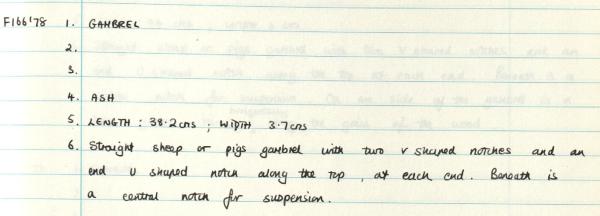 F166'78 1. GAMBREL
2.
3.
4. ASH
5. LENGTH : 38.2cms ; WIDTH 3.7cms
6. Straight sheep or pigs gambrel with two v shaped notches and an
end U shaped notch along the top, at each end. Beneath is
a central notch for suspension.